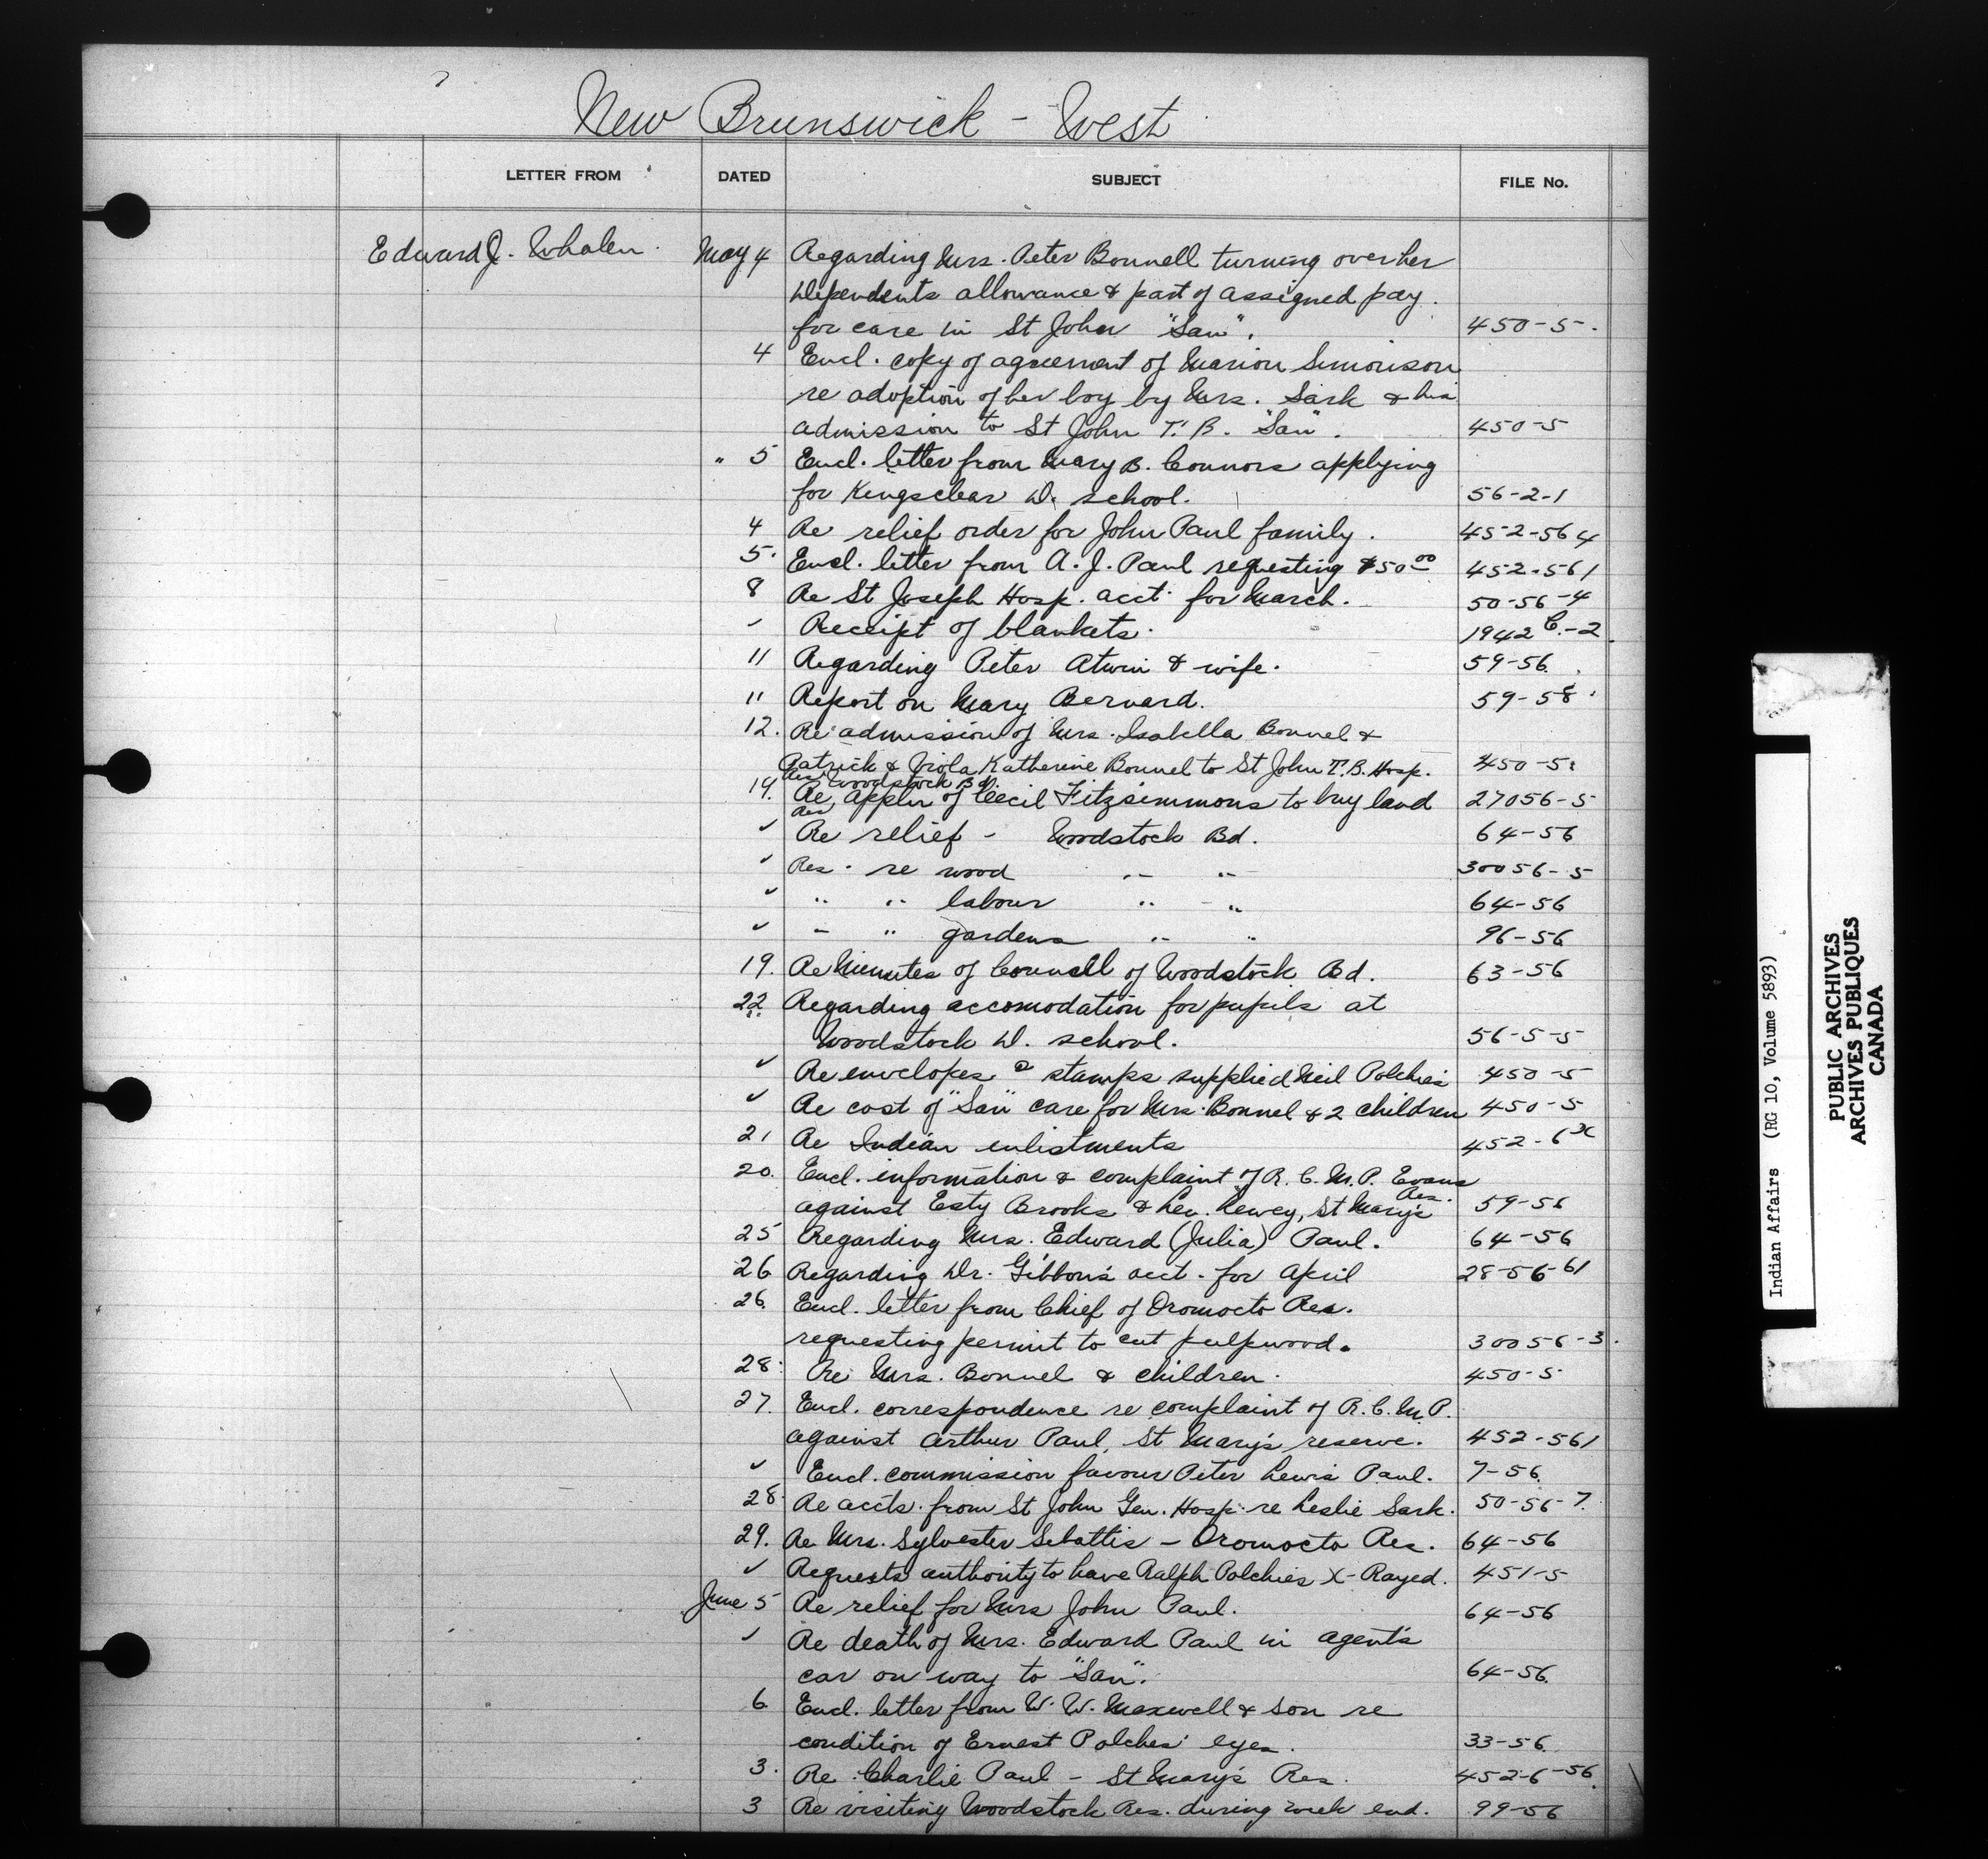 New Brunswick - West
LETTER FROM DATED SUBJECT FILE No.
Edward J. Whalen. May 4 Regarding Mrs. Peter Bonnell turning over her
Dependents allowance & part of assigned pay.
for care in St John "San". 450-5-.
4 Encl. copy of agreement of Marion Simonson
re adoption of her boy by Mrs. Sark & his
admission to St John T.B. "San". 450-5
" 5 Encl. letter from Mary B. Connors applying
for Kingsclear D. school. 56-2-1
4 Re relief order for John Paul family. 452-564
5. Encl. letter from A. J. Paul requesting $50 00 452-561
8 Re St Joseph Hosp. acct. for March. 50-56-4
✓ Receipt of blankets. 1942 C.-2
11 Regarding Peter Atwin & wife. 59-56.
11 Report on Mary Bernard. 59-58
12. Re admission of Mrs. Isabella Bonnel &
Patrick & Viola Katherine Bonnel to St John T.B. Hosp. 450-5
Res. Woodstock Bd.
19. Re appln of Cecil Fitzsimmons to buy land 27056-5
Res
✓ Re relief - Woodstock Bd. 64-56
✓ Res. re wood " " 30056-5
✓ " " labour " " 64-56
✓ " " gardens " " 96-56
19. Re Minutes of Council of Woodstock Bd. 63-56
22 Regarding accomodation for pupils at
Woodstock D. school. 56-5-5
✓ Re envelopes & stamps supplied Neil Polchies 450-5
✓ Re cost of "San" care for Mrs. Bonnel & 2 children 450-5
21 Re Indian enlistments 452-6 X
20. Encl. information & complaint of R.C.M.P. Evans
against Esty Brooks & Leu. Lewey, St Mary's Res. 59-56
25 Regarding Mrs. Edward (Julia) Paul. 64-56
26 Regarding Dr. Gibbon's acct. for April 28-56-61
26. Encl. letter from Chief of Oromocto Res.
requesting permit to cut pulpwood. 30056-3.
28. Re Mrs. Bonnel & children. 450-5
27. Encl. correspondence re complaint of R.C.M.P.
against Arthur Paul, St Mary's reserve. 452-561
✓ Encl. commission favour Peter Lewis Paul. 7-56.
28. Re accts. from St John Gen. Hosp. re Leslie Sark. 50-56-7.
29. Re Mrs. Sylvester Sebattis - Oromocto Res. 64-56
✓ Requests authority to have Ralph Polchies X-Rayed. 451-5
June 5 Re relief for Mrs John Paul. 64-56
✓ Re death of Mrs. Edward Paul in agent's
car on way to "San". 64-56.
6. Encl. letter from W. W. Maxwell & Son re
condition of Ernest Polches' eyes. 33-56.
3. Re Charlie Paul - St Mary's Res. 452-6-56.
3 Re visiting Woodstock Res. during week end. 99-56
Indian Affairs (RG 10, Volume 5893)
PUBLIC ARCHIVES
ARCHIVES PUBLIQUES
CANADA